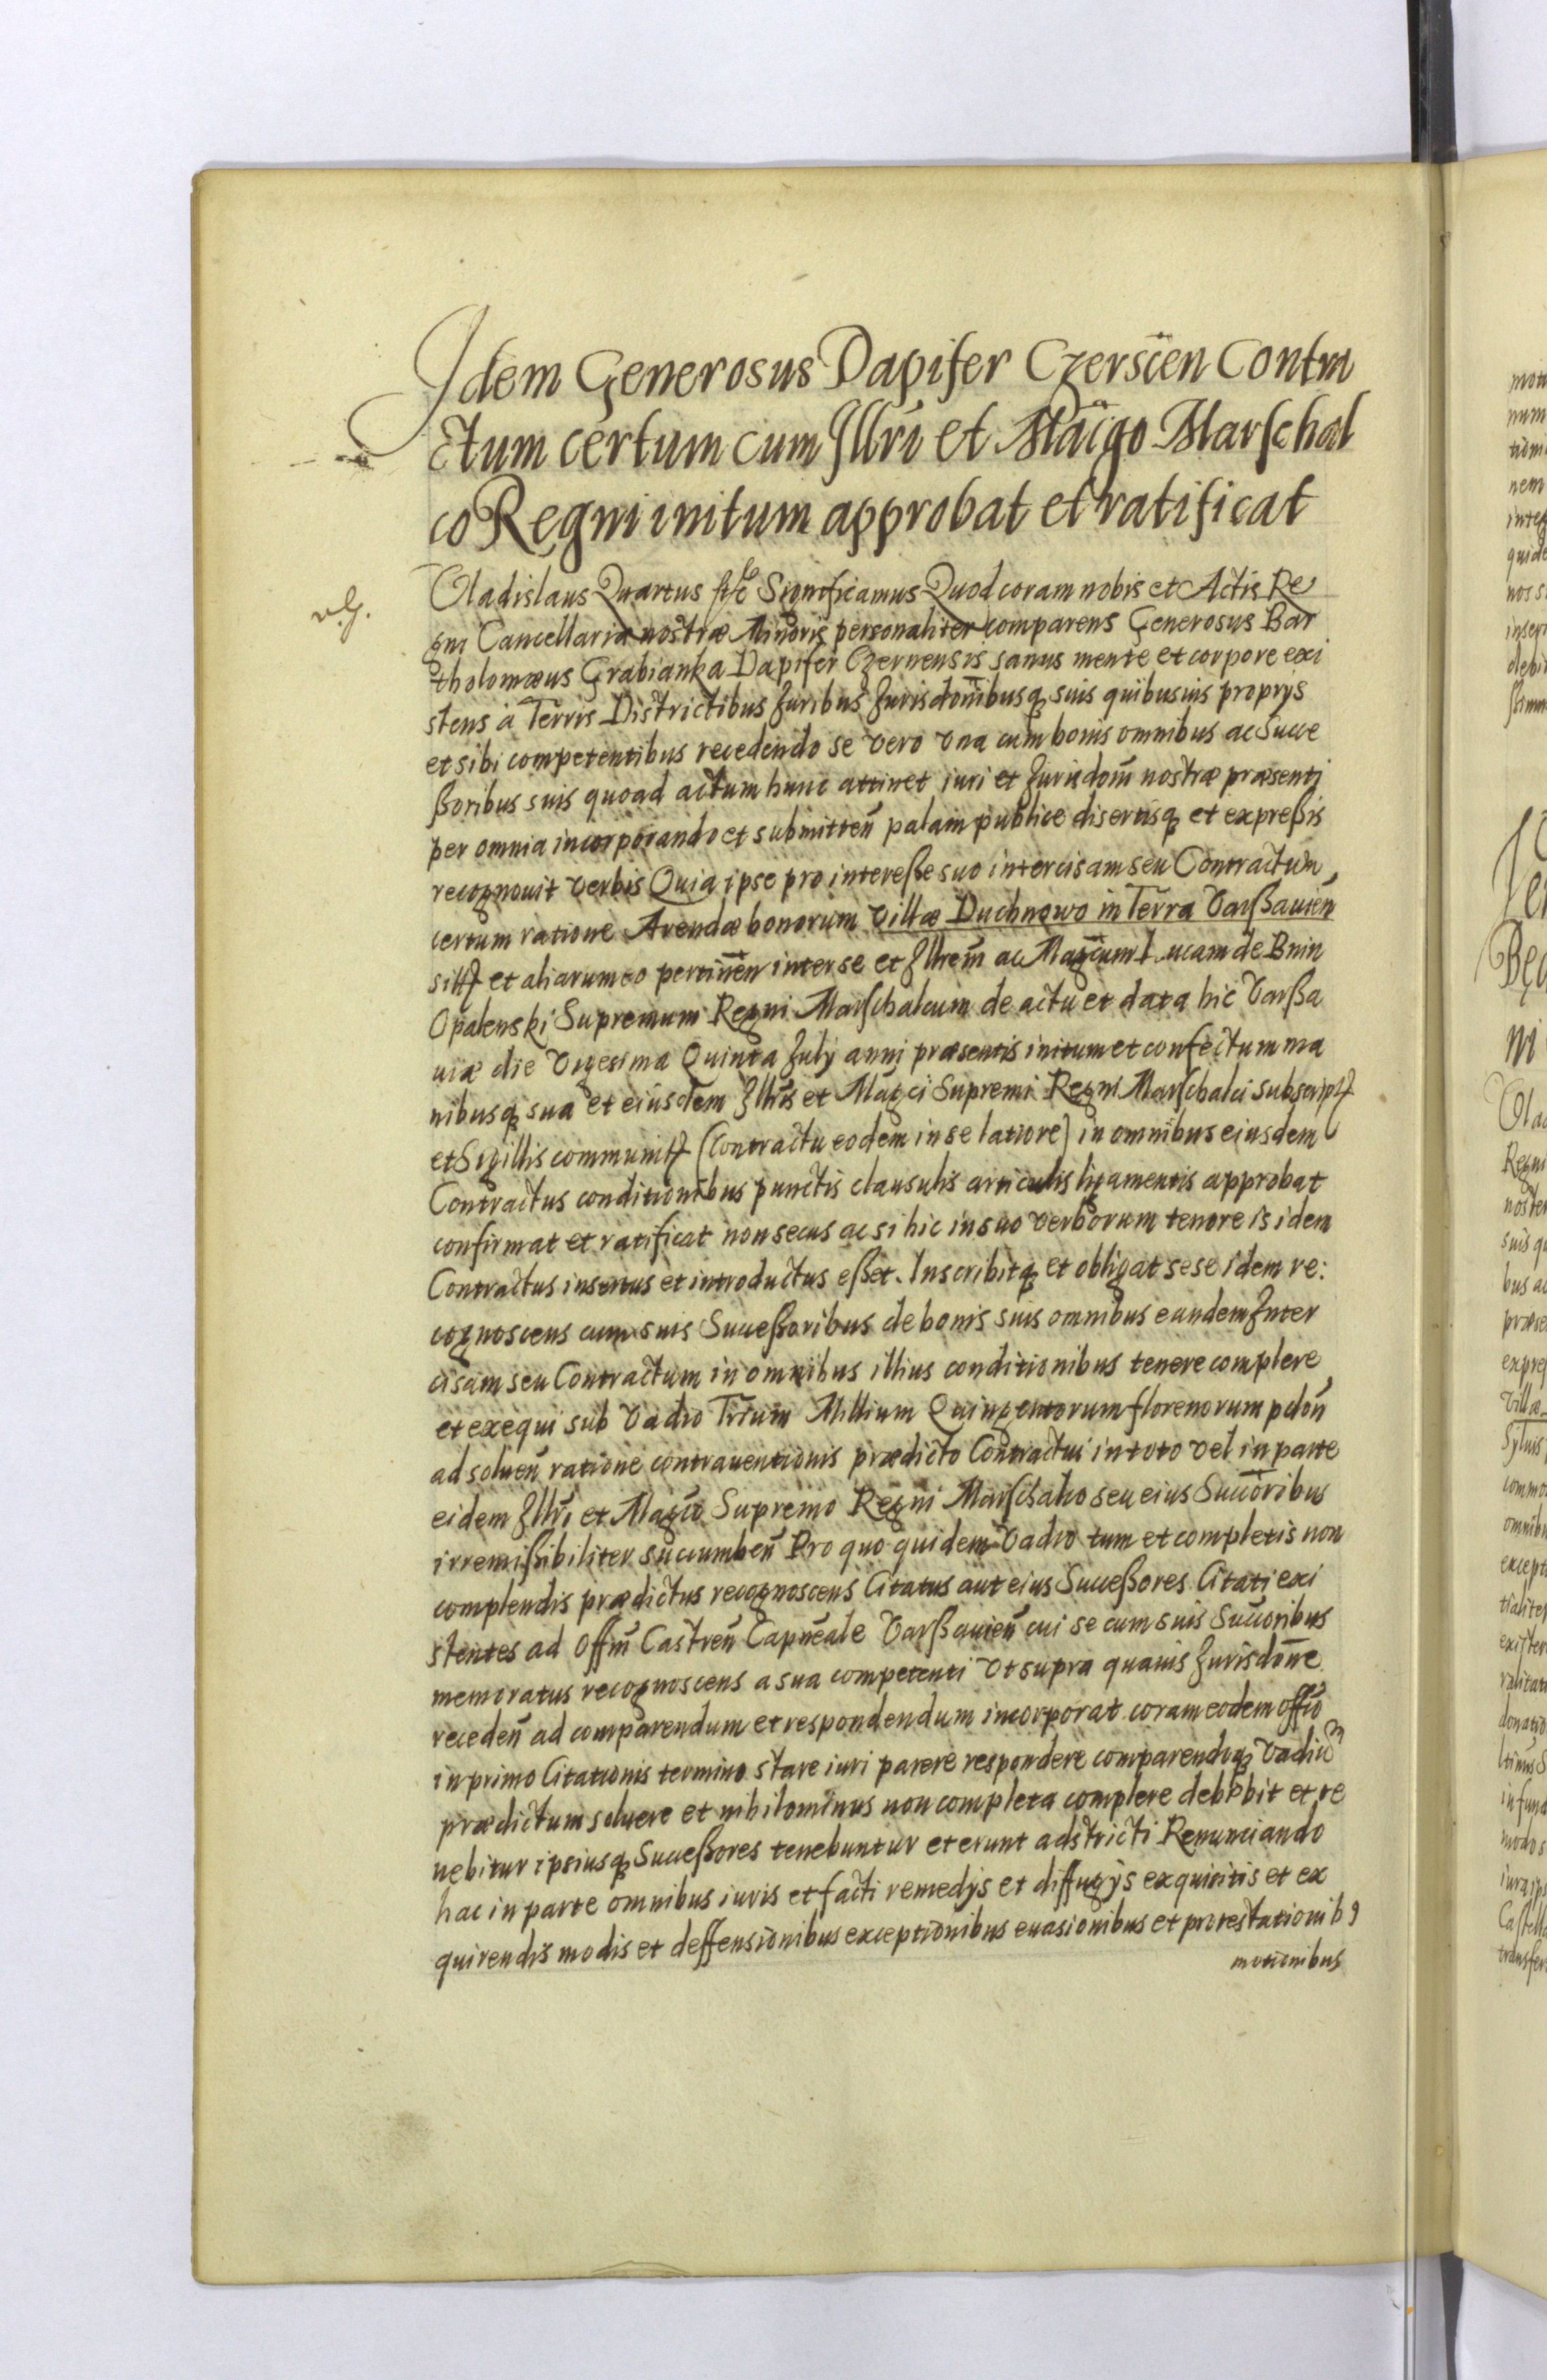 Idem Generosus Dapifer Czersceñ Contra
ctum certum cum Jllri et Mafico Marschal
co Regni initum approbat et ratificat
Vladislaus Quartus Significamus Quod coram nobis et Actis Re
gni Cancellariæ nostræ Minoris personaliter comparens Generosus Bar
tholomæus Grabianka Dapifer Czernensis sanus mente et corpore exi
stens à Terris Districtibus Juribus Jurisdonibusq suis quibusuis proprijs
et sibi competentibus recedendo se vero vna cum bonis omnibus ac Succe
ßoribus suis quoad actum hunc attinet iuri et Jurisdoni nostræ præsenti
per omnia incorporando et submitteñ palam publice disertisq et expreßis
recognouit verbis Quia ipse pro intereße suo intercisam seu Contractum
certum ratione Arendæ bonorum villæ Duchnowo in Terra Varßauieñ
et aliarum eo pertineñ inter se et Jllrem ac Magcum Lucam de Bnin
Opalenski Supremum Regni Marschalcum de actu et data hic Varßa
uiæ die Vigesima Quinta July anni præsentis initum et confectum ma
nibusq sua et eiusdem Jllris et Magci Supremi Regni Marschalci subscript
et Sigillis communit (Contractu eodem in se latiore) in omnibus eiusdem
Contractus conditionibus punctis clausulis articulis ligamentis approbat
confirmat et ratificat non secus ac si hic in suo verborum tenore is idem
Contractus insertus et introductus eßet. Inscribitq et obligat sese idem re:
cognoscens cum suis Succeßoribus de bonis suis omnibus eandem Inter
cisam seu Contractum in omnibus illius conditionibus tenere complere
et exequi sub vadio Trium Millium Quingentorum florenorum pclon
ad solueñ ratione contrauentionis prædicto Contractui in toto vel in parte
eidem Jllri et Magco Supremo Regni Marschalco seu eius Succoribus
irremißibiliter succumbeñ Pro quo quidem Vadio tum et completis non
complendis prædictus recognoscens Citatus aut eius Succeßores Citati exi
stentes ad Offm Castreñ Capneale Varßauieñ cui se cum suis Succoribus
memoratus recognoscens a sua competenti vt supra quauis Jurisdone
recedeñ ad comparendum et respondendum incorporat coram eodem offio
in primo Citationis termino stare iuri parere respondere comparendoq vadiū
prædictum soluere et nihilominus non completa complere debebit et te
nebitur ipsiusq Succeßores tenebuntur et erunt adstricti Renunciando
hac in parte omnibus iuris et facti remedijs et diffugijs exquisitis et ex
quirendis modis et deffensionibus exceptionibus euasionibus et protestationib9
motionibus